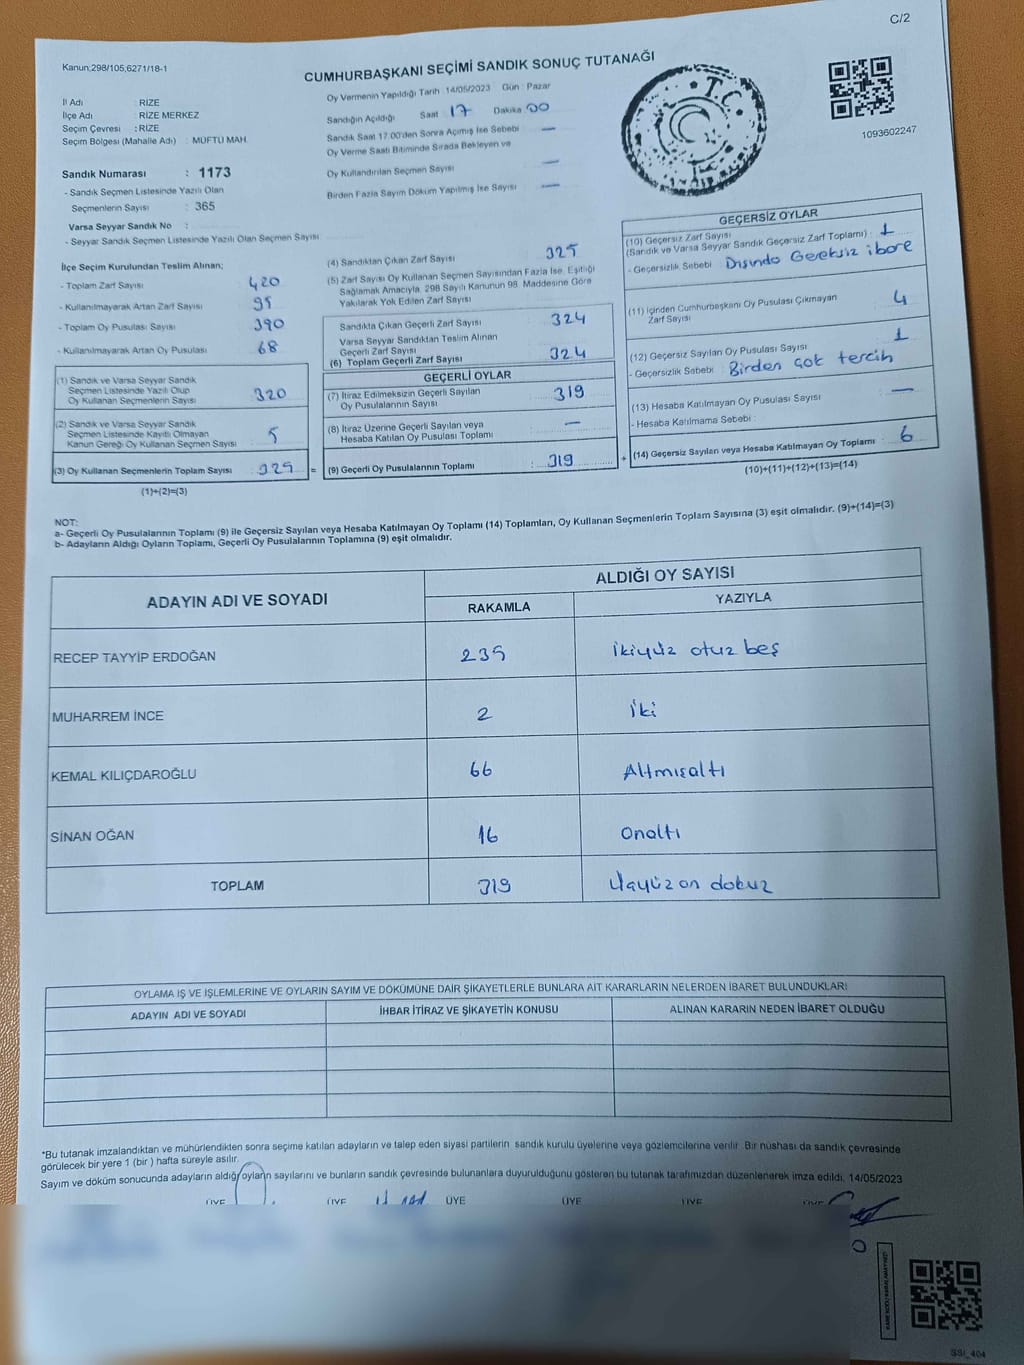 C/2
Kanun;298/105,6271/18-1
CUMHURBAŞKANI SEÇİMİ SANDIK SONUÇ TUTANAĞI
İl Adı : RİZE
İlçe Adı : RİZE MERKEZ
Seçim Çevresi : RİZE
Seçim Bölgesi (Mahalle Adı) : MÜFTÜ MAH.
Sandık Numarası : 1173
- Sandık Seçmen Listesinde Yazılı Olan
Seçmenlerin Sayısı : 365
Varsa Seyyar Sandık No :
- Seyyar Sandık Seçmen Listesinde Yazılı Olan Seçmen Sayısı
Oy Vermenin Yapıldığı Tarih 14/05/2023 Gün : Pazar
Sandığın Açıldığı Saat 17 Dakika 00
Sandık Saat 17.00'den Sonra Açılmış İse Sebebi —
Oy Verme Saati Bitiminde Sırada Bekleyen ve
Oy Kullandırılan Seçmen Sayısı —
Birden Fazla Sayım Döküm Yapılmış İse Sayısı —
T.C.
1093602247
İlçe Seçim Kurulundan Teslim Alınan;
- Toplam Zarf Sayısı : 420
- Kullanılmayarak Artan Zarf Sayısı : 95
- Toplam Oy Pusulası Sayısı : 390
- Kullanılmayarak Artan Oy Pusulası : 68
(1) Sandık ve Varsa Seyyar Sandık
Seçmen Listesinde Yazılı Olup
Oy Kullanan Seçmenlerin Sayısı : 320
(2) Sandık ve Varsa Seyyar Sandık
Seçmen Listesinde Kayıtlı Olmayan
Kanun Gereği Oy Kullanan Seçmen Sayısı : 5
(3) Oy Kullanan Seçmenlerin Toplam Sayısı : 325 =
(1)+(2)=(3)
(4) Sandıktan Çıkan Zarf Sayısı 325
(5) Zarf Sayısı Oy Kullanan Seçmen Sayısından Fazla İse, Eşitliği
Sağlamak Amacıyla, 298 Sayılı Kanunun 98. Maddesine Göre
Yakılarak Yok Edilen Zarf Sayısı
Sandıkta Çıkan Geçerli Zarf Sayısı : 324
Varsa Seyyar Sandıktan Teslim Alınan
Geçerli Zarf Sayısı
(6) Toplam Geçerli Zarf Sayısı : 324
GEÇERLİ OYLAR
(7) İtiraz Edilmeksizin Geçerli Sayılan
Oy Pusulalarının Sayısı : 319
(8) İtiraz Üzerine Geçerli Sayılan veya
Hesaba Katılan Oy Pusulası Toplamı : —
(9) Geçerli Oy Pusulalarının Toplamı : 319 +
GEÇERSİZ OYLAR
(10) Geçersiz Zarf Sayısı
(Sandık ve Varsa Seyyar Sandık Geçersiz Zarf Toplamı) : 1
- Geçersizlik Sebebi : Dışında Gereksiz ibare
(11) İçinden Cumhurbaşkanı Oy Pusulası Çıkmayan
Zarf Sayısı : 4
(12) Geçersiz Sayılan Oy Pusulası Sayısı : 1
- Geçersizlik Sebebi : Birden çok tercih
(13) Hesaba Katılmayan Oy Pusulası Sayısı : —
- Hesaba Katılmama Sebebi :
(14) Geçersiz Sayılan veya Hesaba Katılmayan Oy Toplamı : 6
(10)+(11)+(12)+(13)=(14)
NOT:
a- Geçerli Oy Pusulalarının Toplamı (9) ile Geçersiz Sayılan veya Hesaba Katılmayan Oy Toplamı (14) Toplamları, Oy Kullanan Seçmenlerin Toplam Sayısına (3) eşit olmalıdır. (9)+(14)=(3)
b- Adayların Aldığı Oyların Toplamı, Geçerli Oy Pusulalarının Toplamına (9) eşit olmalıdır.
ADAYIN ADI VE SOYADI ALDIĞI OY SAYISI
RAKAMLA YAZIYLA
RECEP TAYYİP ERDOĞAN 235 ikiyüz otuz beş
MUHARREM İNCE 2 iki
KEMAL KILIÇDAROĞLU 66 Altmışaltı
SİNAN OĞAN 16 Onaltı
TOPLAM 319 Üçyüz on dokuz
OYLAMA İŞ VE İŞLEMLERİNE VE OYLARIN SAYIM VE DÖKÜMÜNE DAİR ŞİKAYETLERLE BUNLARA AİT KARARLARIN NELERDEN İBARET BULUNDUKLARI
ADAYIN ADI VE SOYADI İHBAR İTİRAZ VE ŞİKAYETİN KONUSU ALINAN KARARIN NEDEN İBARET OLDUĞU
*Bu tutanak imzalandıktan ve mühürlendikten sonra seçime katılan adayların ve talep eden siyasi partilerin sandık kurulu üyelerine veya gözlemcilerine verilir. Bir nüshası da sandık çevresinde
görülecek bir yere 1 (bir ) hafta süreyle asılır.
Sayım ve döküm sonucunda adayların aldığı oyların sayılarını ve bunların sandık çevresinde bulunanlara duyurulduğunu gösteren bu tutanak tarafımızdan düzenlenerek imza edildi. 14/05/2023
ÜYE ÜYE ÜYE ÜYE ÜYE ÜYE
SSI_404